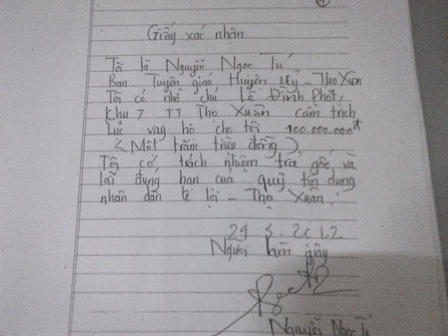 Giấy xác nhân
Tôi là Nguyễn Ngọc Tú
Ban Tuyên giáo Huyện uỷ - Thọ Xuân
Tôi có nhờ chú Lê Đình Phát,
Khu 7 TT Thọ Xuân cầm trích
lục vay hộ cho tôi 100.000.000đ
( Một trăm triệu đồng ),
Tôi có trách nhiệm trả gốc và
lãi đúng hạn của quỹ tín dụng
nhân dân lê lợi - Thọ Xuân.
29 3. 2012
Người làm giấy
Nguyễn Ngọc Tú